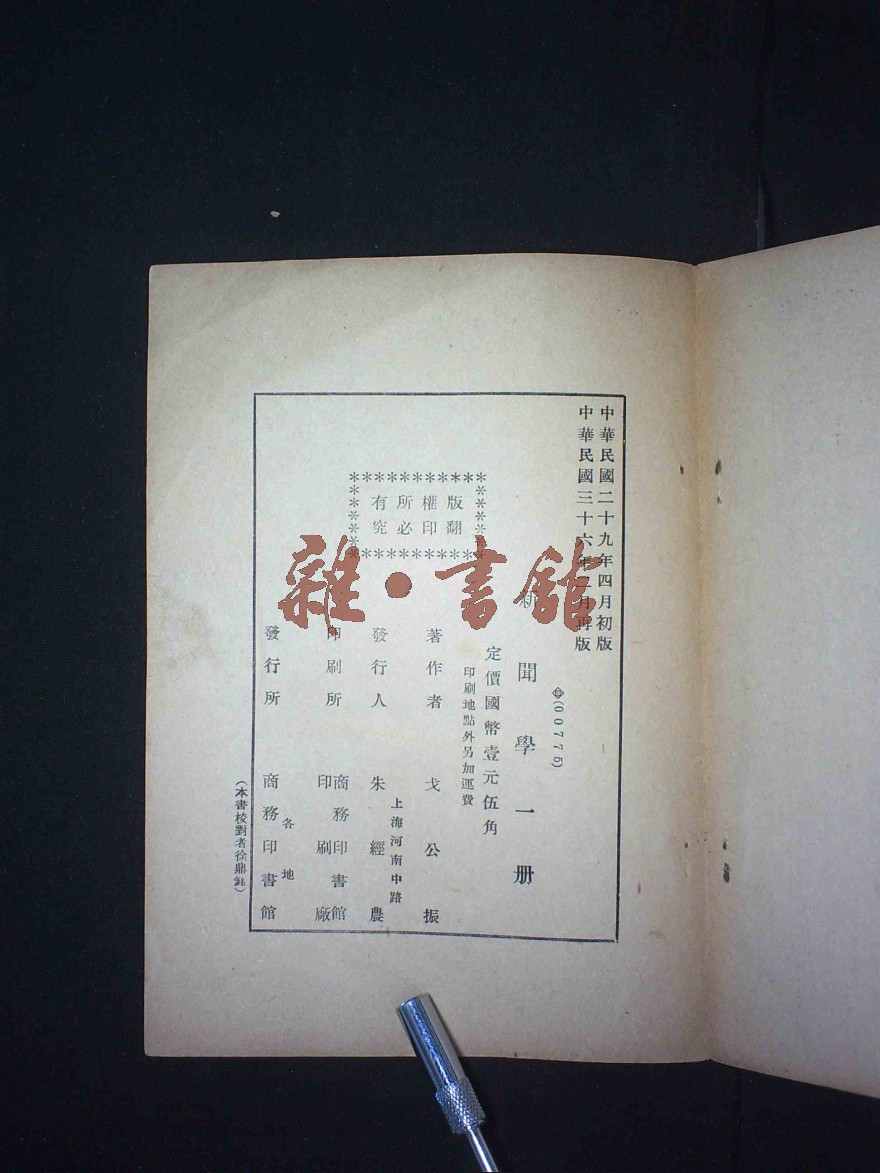 中華民國二十九年四月初版
中華民國三十六年二月再版
(00775)
新聞學一册
定價國幣壹元伍角
印刷地點外另加運費
版權所有
翻印必究
著作者 戈公振
發行人 朱經農
上海河南中路
印刷所 商務印書館印刷廠
發行所 商務印書館
各地
(本書校對者徐鼎銘)
雜·書館